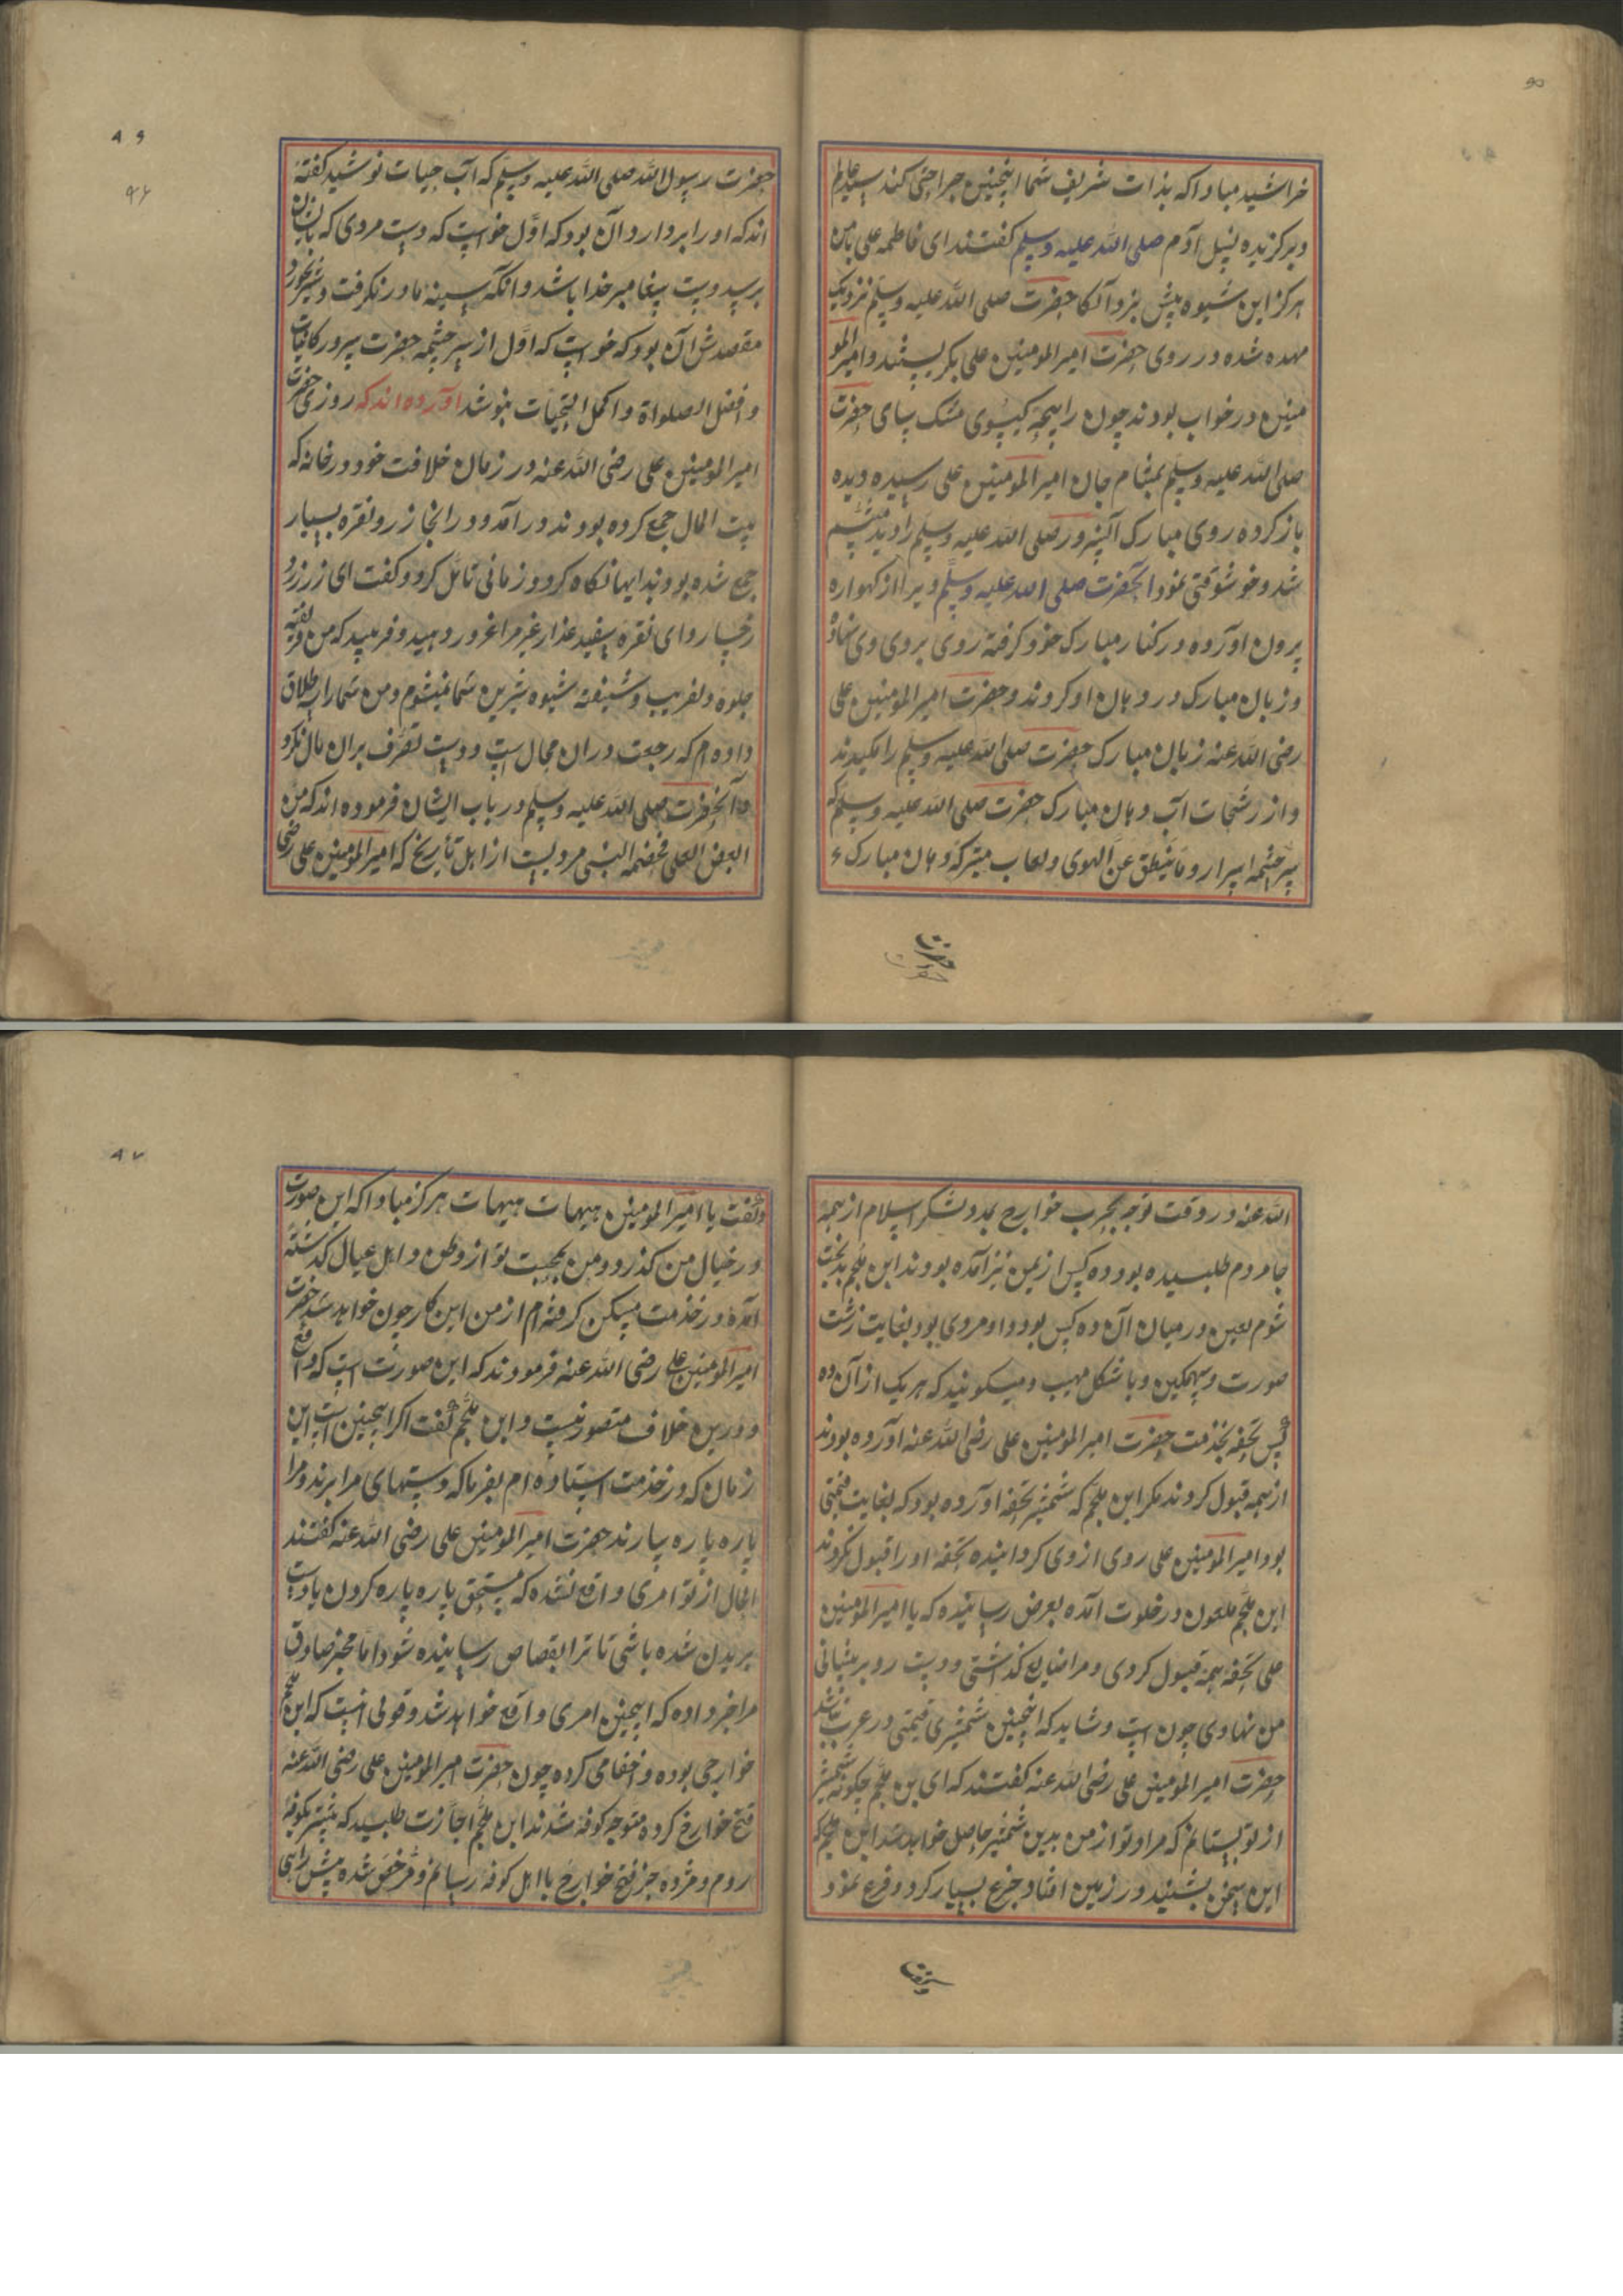 خراشید مبادا که بذات شریف شما اینچنین جراحتی کند سید عالم
و برگزیده نسل آدم صلی الله علیه وسلم گفتند ای فاطمه علی با من
هرکز این شیوه پیش نبرد آنکا حضرت صلی الله علیه وسلم نزدیک
مهده شده در روی حضرت امیر المومنین علی نکریستند و امیر المو
منین در خواب بودند چون رایحهٔ کیسوی مشک سای حضرت
صلی الله علیه وسلم بمشام جان امیر المومنین علی رسیده دیده
باز کرده روی مبارک آن سرور صلی الله علیه وسلم را دید متبسم
شد و خوشوقتی نمود آنحضرت صلی الله علیه وسلم ویرا از کهواره
برون آورده در کنار مبارک خود کرفته روی بروی وی نهاد
و زبان مبارک در دهان او کردند و حضرت امیر المومنین علی
رضی الله عنه زبان مبارک حضرت صلی الله علیه وسلم را مکیدند
و از رشحات آب دهان مبارک حضرت صلی الله علیه وسلم که
سرچشمه اسرار و ما ینطق عن الهوی و لعاب متبرکه دهان مبارک
حضرت
حضرت رسول الله صلی الله علیه وسلم که آب حیات نوشید کفته
اند که او را بر دارد آن بود که اول خواست که دست مردی که بایشان
برسد دست پیغامبر خدا باشد و آنکه سینهٔ مادر نکرفت و شیر نخورد
مقصدش آن بود که خواست که اول از سرچشمه حضرت سرور کاینات
و افضل الصلواة و اکمل التحیات بنوشد آورده اند که روزی حضرت
امیر المومنین علی رضی الله عنه در زمان خلافت خود در خانه که
بیت المال جمع کرده بودند در آمد و در انجا زر و نقره بسیار
جمع شده بود بدایها نکاه کرد و زمانی تامل کرد و کفت ای زر زرد
رخسار و ای نقره سفید عذار غیر مرا غرور دهید و فریبید که من فریفته
جلوه دلفریب و شیفته شیوه شیرین شما نمیشوم و من شما را سه طلاق
داده ام که رجعت دران محال است و دست تصرف بران مال نکرد
و آنحضرت صلی الله علیه وسلم در باب ایشان فرموده اند که من
ابغض العلی فخصمه النبی مرویست از اهل تأریخ که امیر المومنین علی رضی
الله عنه در وقت توجه بحرب خوارج بمدد لشکر اسلام از همه
جا مردم طلبسیده بود و ده کس از یمن نیز آمده بودند ابن ملجم بدبخت
شوم لعین در میان آن ده کس بود و او مردی بود بغایت زشت
صورت و سهمکین و با شکل مهیب و میکویند که هر یک از آن ده
کس تحفه بخدمت حضرت امیر المومنین علی رضی الله عنه آورده بودند
از همه قبول کردند مکر ابن ملجم که شمشیر تحفه آورده بود که بغایت قیمتی
بود امیر المومنین علی روی از وی کردانیده تحفه او را قبول نکردند
ابن ملجم ملعون در خلوت آمده بعرض رسانیده که یا امیر المومنین
علی تحفه همه قبول کردی و مرا ضایع کذاشتی و دست رد بر پیشانی
من نهادی چون است و شاید که اینچنین شمشیری قیمتی در عرب نباشد
حضرت امیر المومنین علی رضی الله عنه کفتند که ای بن ملجم چکونه شمشیر
از تو بستانم که مراد تو از من بدین شمشیر حاصل خواهد شد ابن ملجم که
این سخن بشنید در زمین افتاد و جزع بسیار کرد و فزع نمود
و کفت یا امیر المومنین هیهات هیهات هرکز مبادا که این صورت
در خیال من کذرد و من بمحبت تو از وطن و اهل عیال کذشته
آمده در خدمت مسکن کرفته ام از من این کار چون خواهد شد حضرت
امیر المومنین علی رضی الله عنه فرمودند که این صورت است که واقع
و درین خلاف متصور نیست و ابن ملجم کفت اکر اینچنین است این
زمان که در خدمت استاده ام بفرما که دستهای مرا برند و مرا
پاره پاره سازند حضرت امیر المومنین علی رضی الله عنه کفتند
الحال از تو امری واقع نشده که مستحق پاره پاره کردن یا دست
بریدن شده باشی تا ترا بقصاص رسانیده شود اما مخبر صادق
مرا خبر داده که اینچنین امری واقع خواهد شد و قولی انست که ابن ملجم
خوارجی بوده و اخفا می کرده چون حضرت امیر المومنین علی رضی الله عنه
فتح خوارج کرده متوجه کوفه شدند ابن ملجم اجازت طلبسید که پیشتر بکوفه
روم و مژده خبر فتح خوارج با اهل کوفه رسانم و مرخص شده پیش راهی